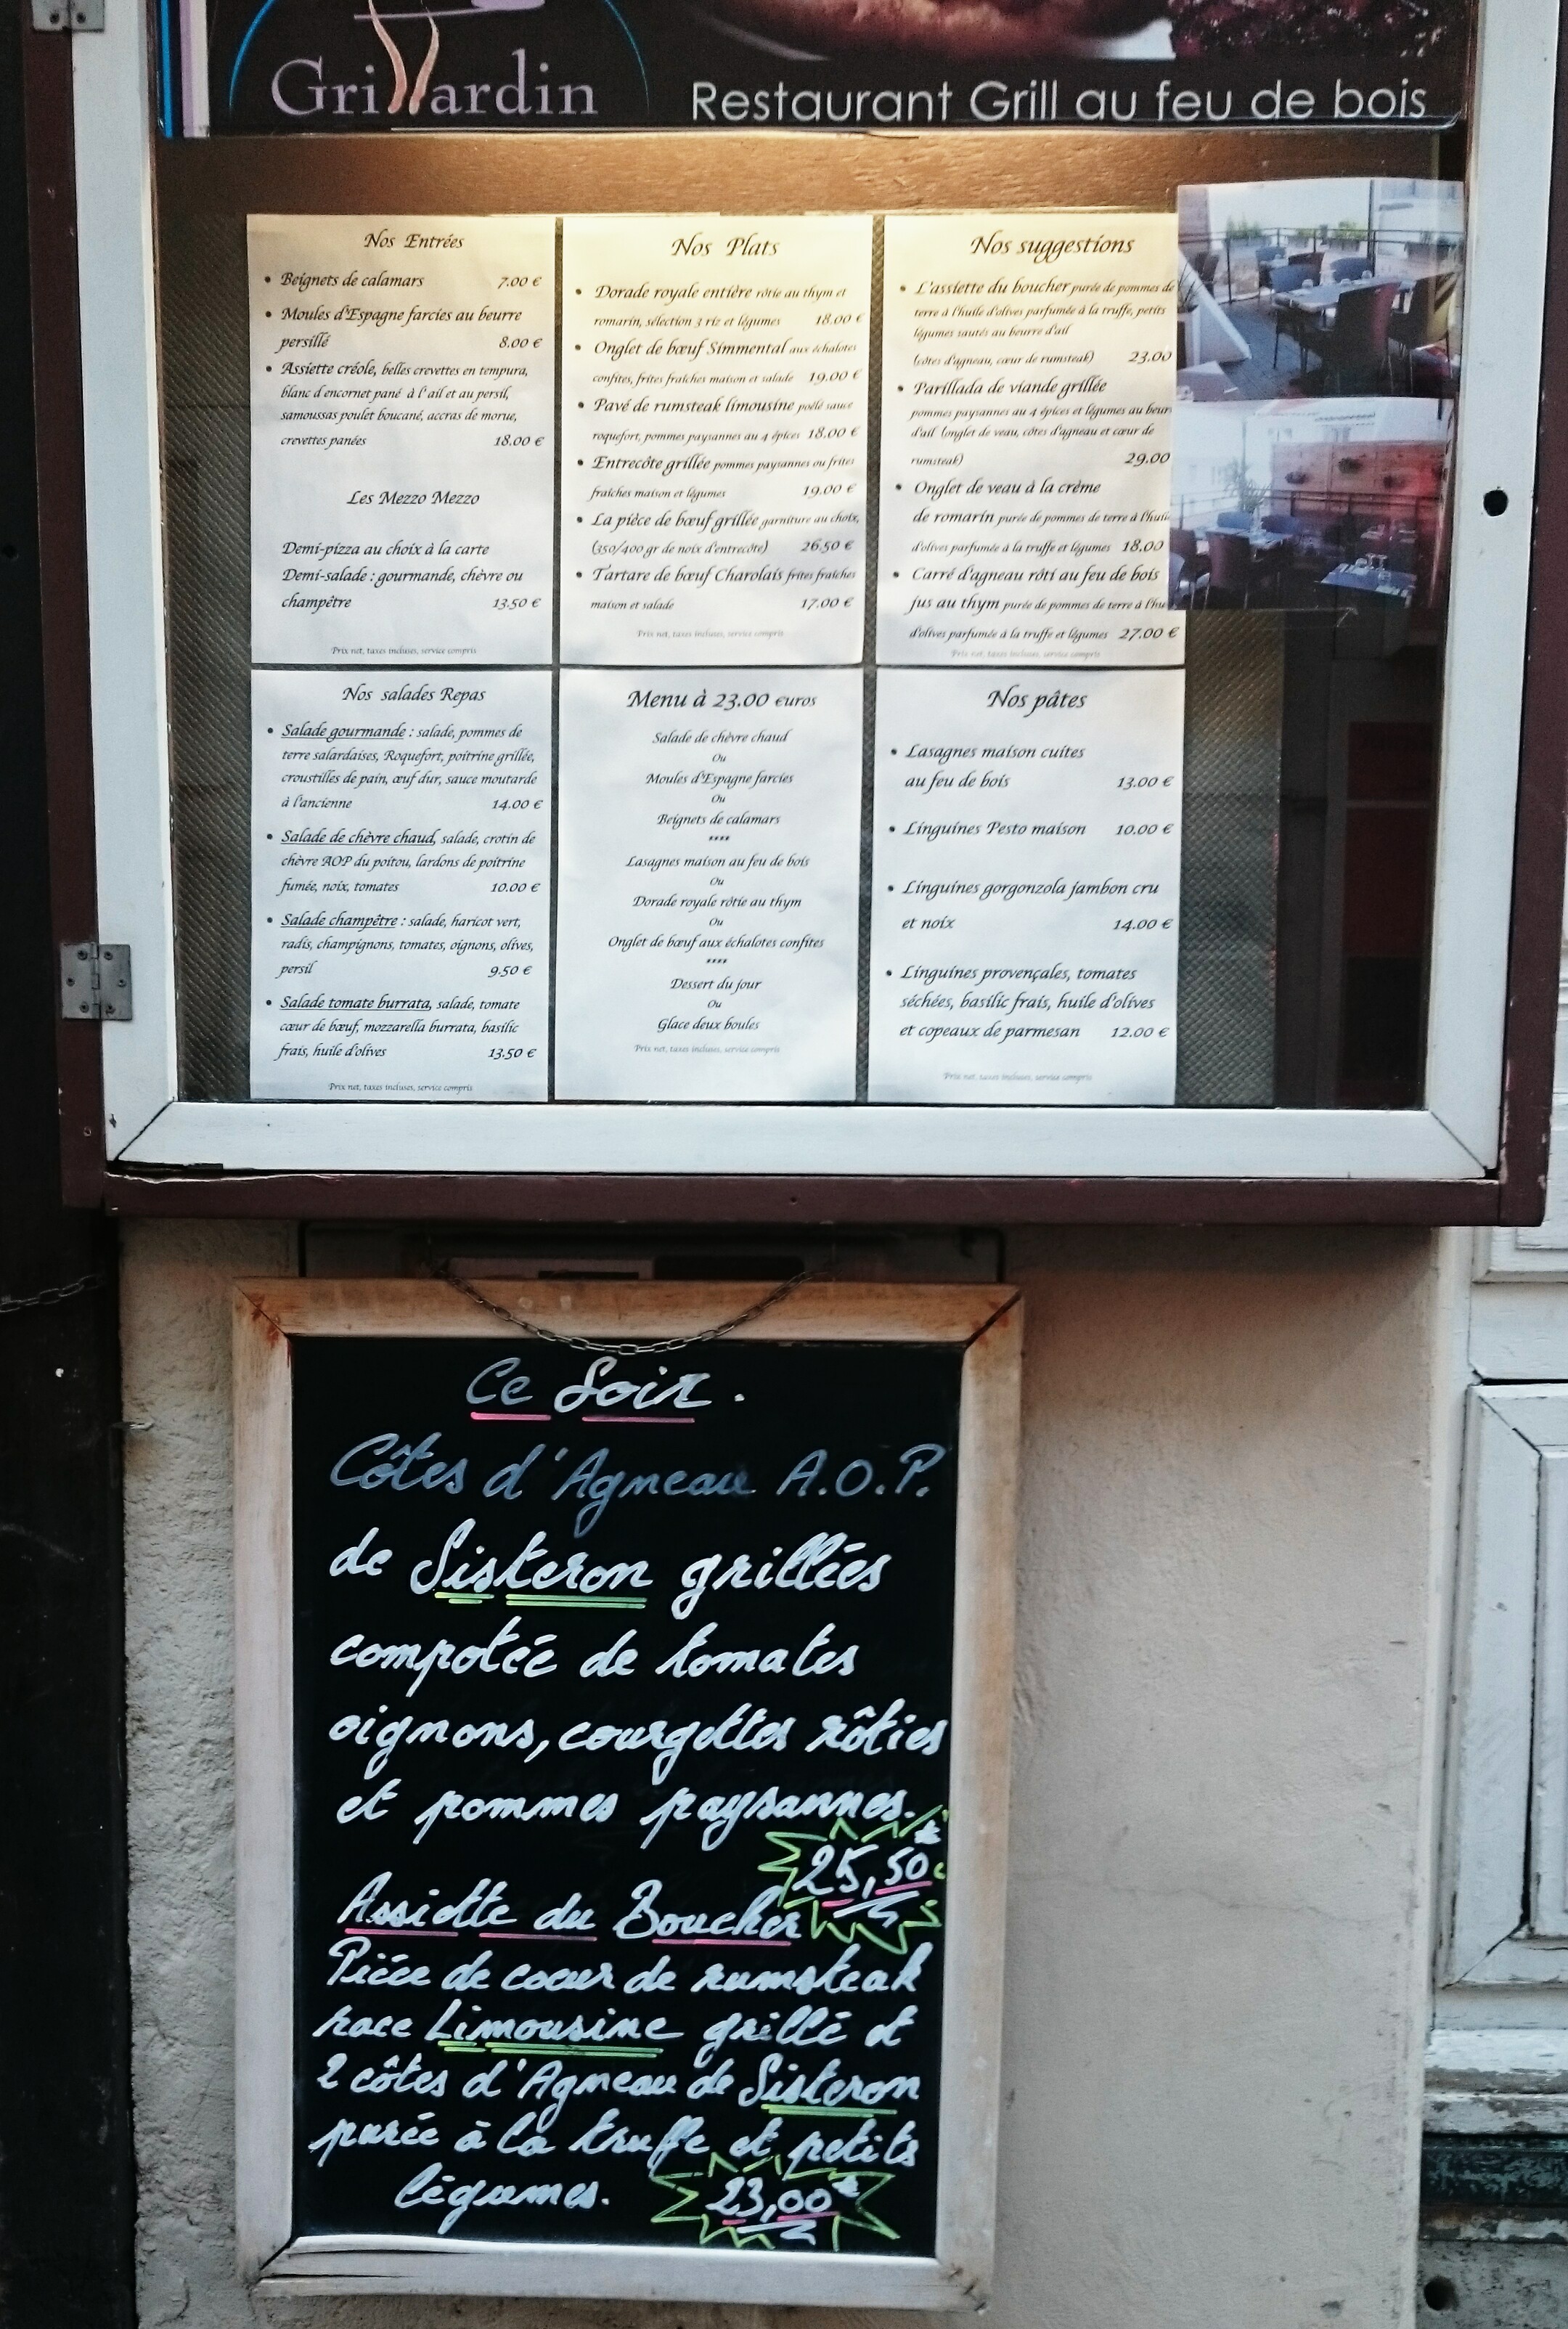 Grillardin
Restaurant Grill au feu de bois
Nos Entrées
• Beignets de calamars 7.00 €
• Moules d'Espagne farcies au beurre
persillé 8.00 €
• Assiette créole, belles crevettes en tempura,
blanc d'encornet pané à l'ail et au persil,
samoussas poulet boucané, accras de morue,
crevettes panées 18.00 €
Les Mezzo Mezzo
Demi-pizza au choix à la carte
Demi-salade : gourmande, chèvre ou
champêtre 13.50 €
Prix net, taxes incluses, service compris
Nos Plats
• Dorade royale entière rôtie au thym et
romarin, sélection 3 riz et légumes 18.00 €
• Onglet de bœuf Simmental aux échalotes
confites, frites fraîches maison et salade 19.00 €
• Pavé de rumsteak limousine poêlé sauce
roquefort, pommes paysannes au 4 épices 18.00 €
• Entrecôte grillée pommes paysannes ou frites
fraîches maison et légumes 19.00 €
• La pièce de bœuf grillée garniture au choix,
(350/400 gr de noix d'entrecôte) 26.50 €
• Tartare de bœuf Charolais frites fraîches
maison et salade 17.00 €
Prix net, taxes incluses, service compris
Nos suggestions
• L'assiette du boucher purée de pommes de
terre à l'huile d'olives parfumée à la truffe, petits
légumes sautés au beurre d'ail
(côtes d'agneau, cœur de rumsteak) 23.00
• Parillada de viande grillée
pommes paysannes au 4 épices et légumes au beur
d'ail (onglet de veau, côtes d'agneau et cœur de
rumsteak) 29.00
• Onglet de veau à la crème
de romarin purée de pommes de terre à l'huile
d'olives parfumée à la truffe et légumes 18.00
• Carré d'agneau rôti au feu de bois
jus au thym purée de pommes de terre à l'hu
d'olives parfumée à la truffe et légumes 27.00 €
Prix net, taxes incluses, service compris
Nos salades Repas
• Salade gourmande : salade, pommes de
terre salardaises, Roquefort, poitrine grillée,
croustilles de pain, œuf dur, sauce moutarde
à l'ancienne 14.00 €
• Salade de chèvre chaud, salade, crotin de
chèvre AOP du poitou, lardons de poitrine
fumée, noix, tomates 10.00 €
• Salade champêtre : salade, haricot vert,
radis, champignons, tomates, oignons, olives,
persil 9.50 €
• Salade tomate burrata, salade, tomate
cœur de bœuf, mozzarella burrata, basilic
frais, huile d'olives 13.50 €
Prix net, taxes incluses, service compris
Menu à 23.00 euros
Salade de chèvre chaud
Ou
Moules d'Espagne farcies
Ou
Beignets de calamars
****
Lasagnes maison au feu de bois
Ou
Dorade royale rôtie au thym
Ou
Onglet de bœuf aux échalotes confites
****
Dessert du jour
Ou
Glace deux boules
Prix net, taxes incluses, service compris
Nos pâtes
• Lasagnes maison cuites
au feu de bois 13.00 €
• Linguines Pesto maison 10.00 €
• Linguines gorgonzola jambon cru
et noix 14.00 €
• Linguines provençales, tomates
séchées, basilic frais, huile d'olives
et copeaux de parmesan 12.00 €
Prix net, taxes incluses, service compris
Ce Soir.
Côtes d'Agneau A.O.P.
de Sisteron grillées
compotée de tomates
oignons, courgettes rôties
et pommes paysannes.
25,50 €
Assiette du Boucher
Pièce de coeur de rumsteak
race Limousine grillé et
2 côtes d'Agneau de Sisteron
purée à la truffe et petits
légumes.
23,00 €